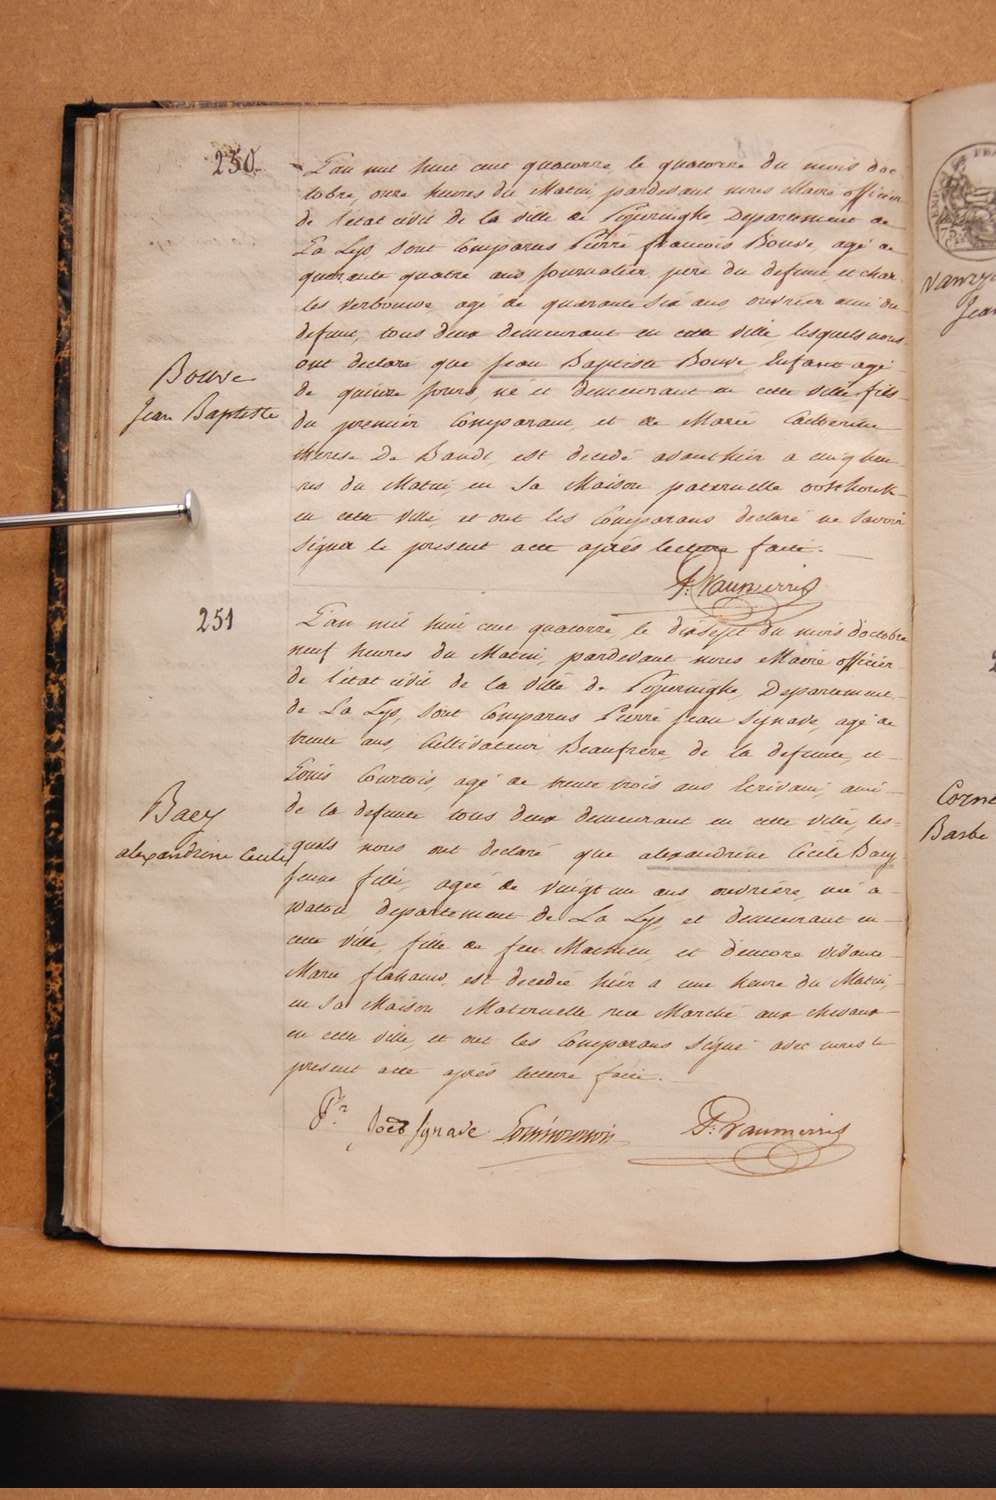 250.
L'an mil huit cent quatorze le quatorze du mois d'oc-
tobre, onze heures du Matin, pardevant nous Maire officier
de l'etat civil de la ville de Poperinghe Departement de
La Lys sont Comparus Pierre francois Bouve, agé de
quarante quatre ans Journalier, pere du defunt, et char-
les verbouwe, agé de quarante six ans, ouvrier ami du
defunt, tous deux demeurant en cette ville lesquels nous
ont declaré que Jean Baptiste Bouve, Enfant agé
de quinze Jours, né et demeurant en cette ville fils
du premier Comparant, et de Marie Catherine
therese De Bandt, est decedé avant hier a cinq heu-
res du Matin, en sa Maison paternelle oosthoek-
en cette ville et ont les Comparans declaré ne Savoir
signer le present acte après lecture faite.
Bouve
Jean Baptiste
P. Vanmerris
251
L'an mil huit cent quatorze le dixsept du mois d'octobre
neuf heures du Matin, pardevant nous Maire officier
de l'etat civil de la ville de Poperinghe, Departement
de La Lys, sont Comparus Pierre Jean Synave, agé de
trente ans, Cultivateur Beaufrere, de la defunte, et
Louis Courtois, agé de trente trois ans Ecrivain, ami
de la defunte tous deux demeurant en cette ville, les-
quels nous ont declaré que alexandrine Cecile Baey
jeune fille, agée de vingt un ans ouvrière, née a
watou, departement de La Lys, et demeurant en
cette ville, fille de feu Mathieu, et d'encore vivante
Marie flahauw, est decedée hier a une heure du Matin,
en sa Maison Maternelle rue Marché aux chevaux
en cette ville, et ont les Comparans signé avec nous le
present acte après lecture faite.
Baey
alexandrine Cecile
Pr. Joës Synave Louis Courtois P. Vanmerris
Jean
Corne
Barbe